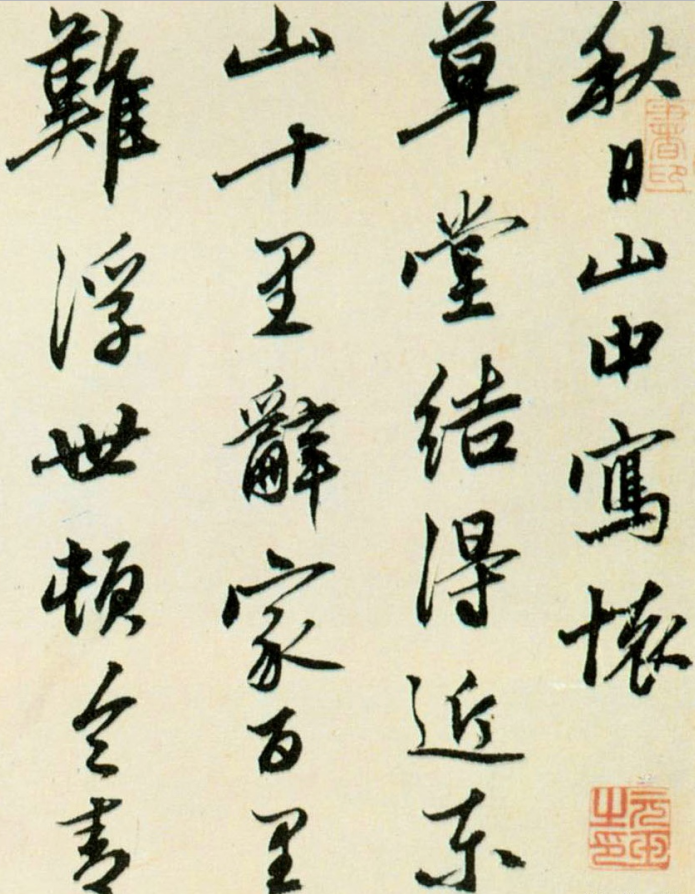 秋日山中寫懷
草堂結得近東
山十里辭家百里
難浮世頓令青